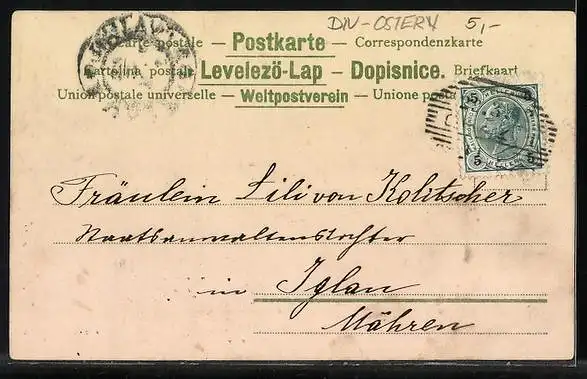 DIV-OSTERN 5,-
Carte postale — Postkarte — Correspondenzkarte
Cartolina postale Levelező-Lap — Dopisnice. Briefkaart
Union postale universelle — Weltpostverein — Unione postale
5 5
5 5
Fräulein Lili von Kolitscher
Staatsanwaltenstochter
in Iglau
Mähren